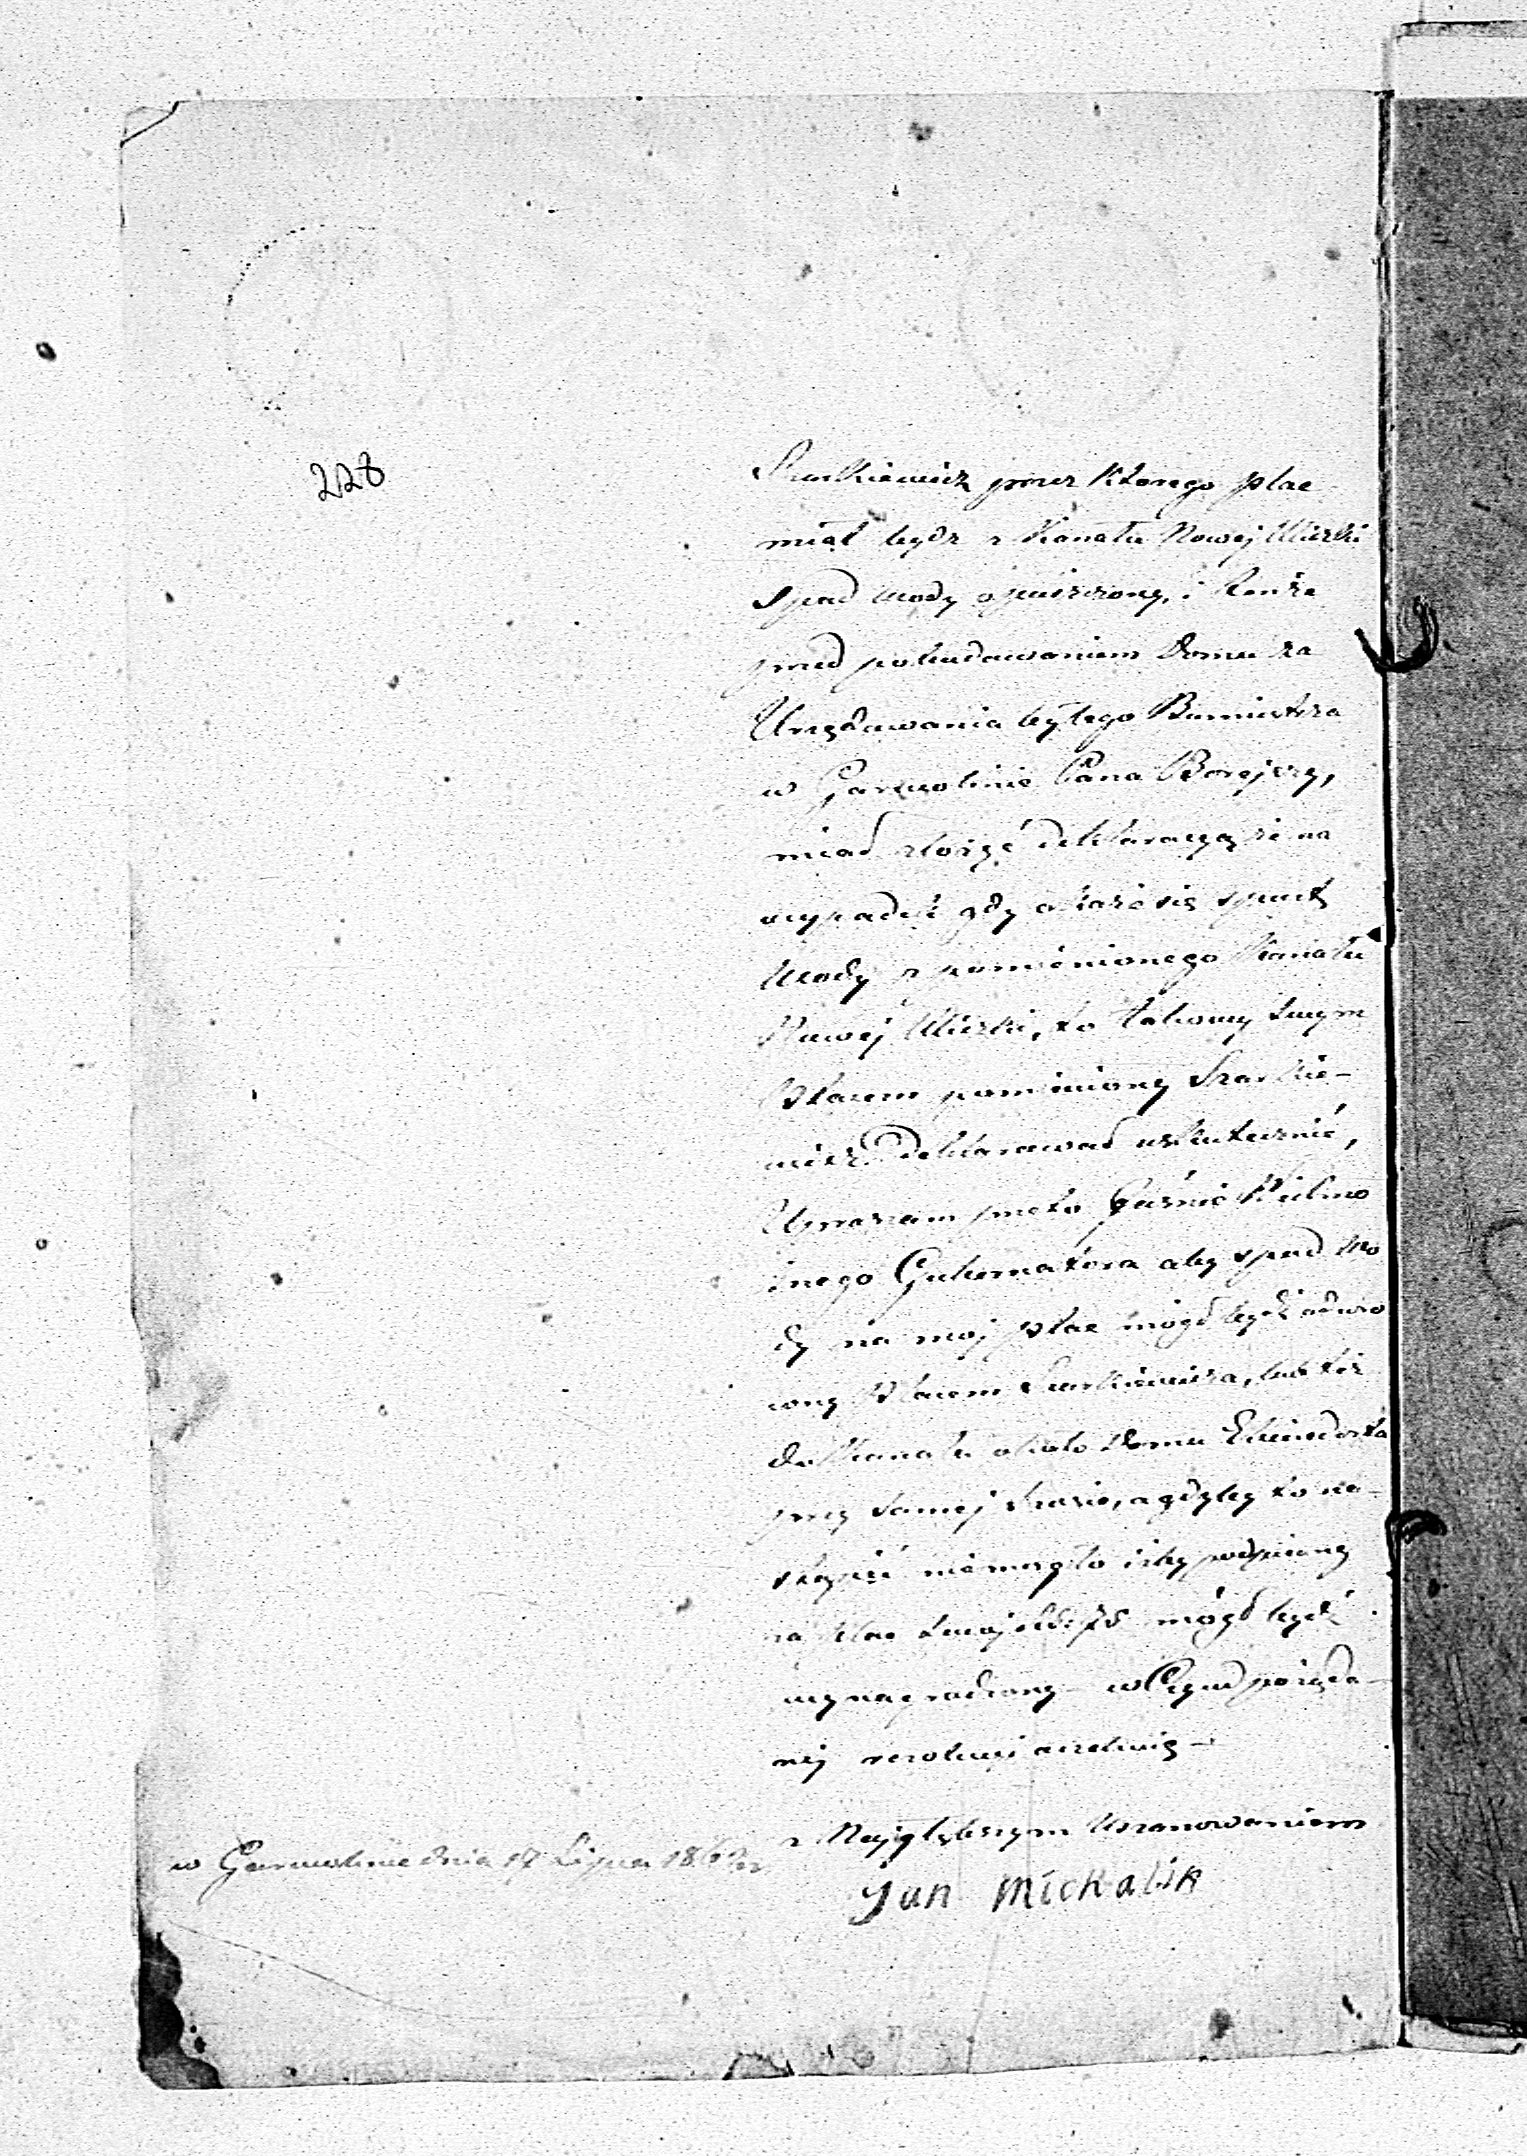 228
Szarkiewicz przez Którego plac
miał bydz z Kanału Nowej Uliczki
spad wody opuszczony, i Ronże
przed pobudowaniem Domu za
Urzędowania byłego Burmistrza
w Garwolinie Pana Borejszy,
miał złożyć deklaracyą że na
wypadek gdy okaże się spust
Wody z pomienionego Kanału
Nowej Uliczki, to takowy swym
Placem pomieniony Szarkie-
wicz deklarował uskutecznić,
Upraszam przeto Jaśnie Wielmo
żnego Gubernatora aby spad Wo
dy na moj plac mógł bydź odwro
cony Placem Szarkiewicza, lub też
do Kanału około Domu
przy samej Szosie, a gdyby to na-
stąpić niemogło iżby podpisany
za plac swoj mógł bydź
wynagrodzony – w Czym pożąda-
nej rezolucyi oczekuję –
z Najgłębszym Uszanowaniem
w Garwolinie dnia 17 Lipca
Jan Michalik